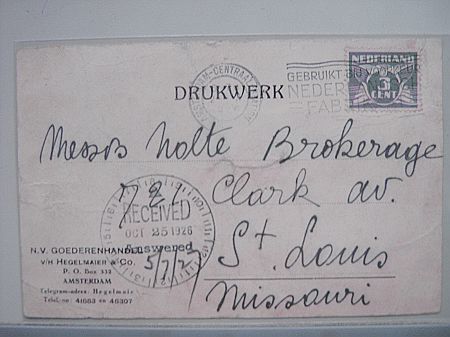 NEDERLAND
CENT
GEBRUIKT
NEDER
FAB
DRUKWERK
Messrs Nolte Brokerage
Clark av.
St. Louis
Missouri
RECEIVED
OCT 25 1926
Answered
N.V. GOEDERENHANDEL
v/h HEGELMAIER & Co.
P. O. Box 332
AMSTERDAM
Telegram-adres: Hegelmaier
Telef. no: 41683 en 46307